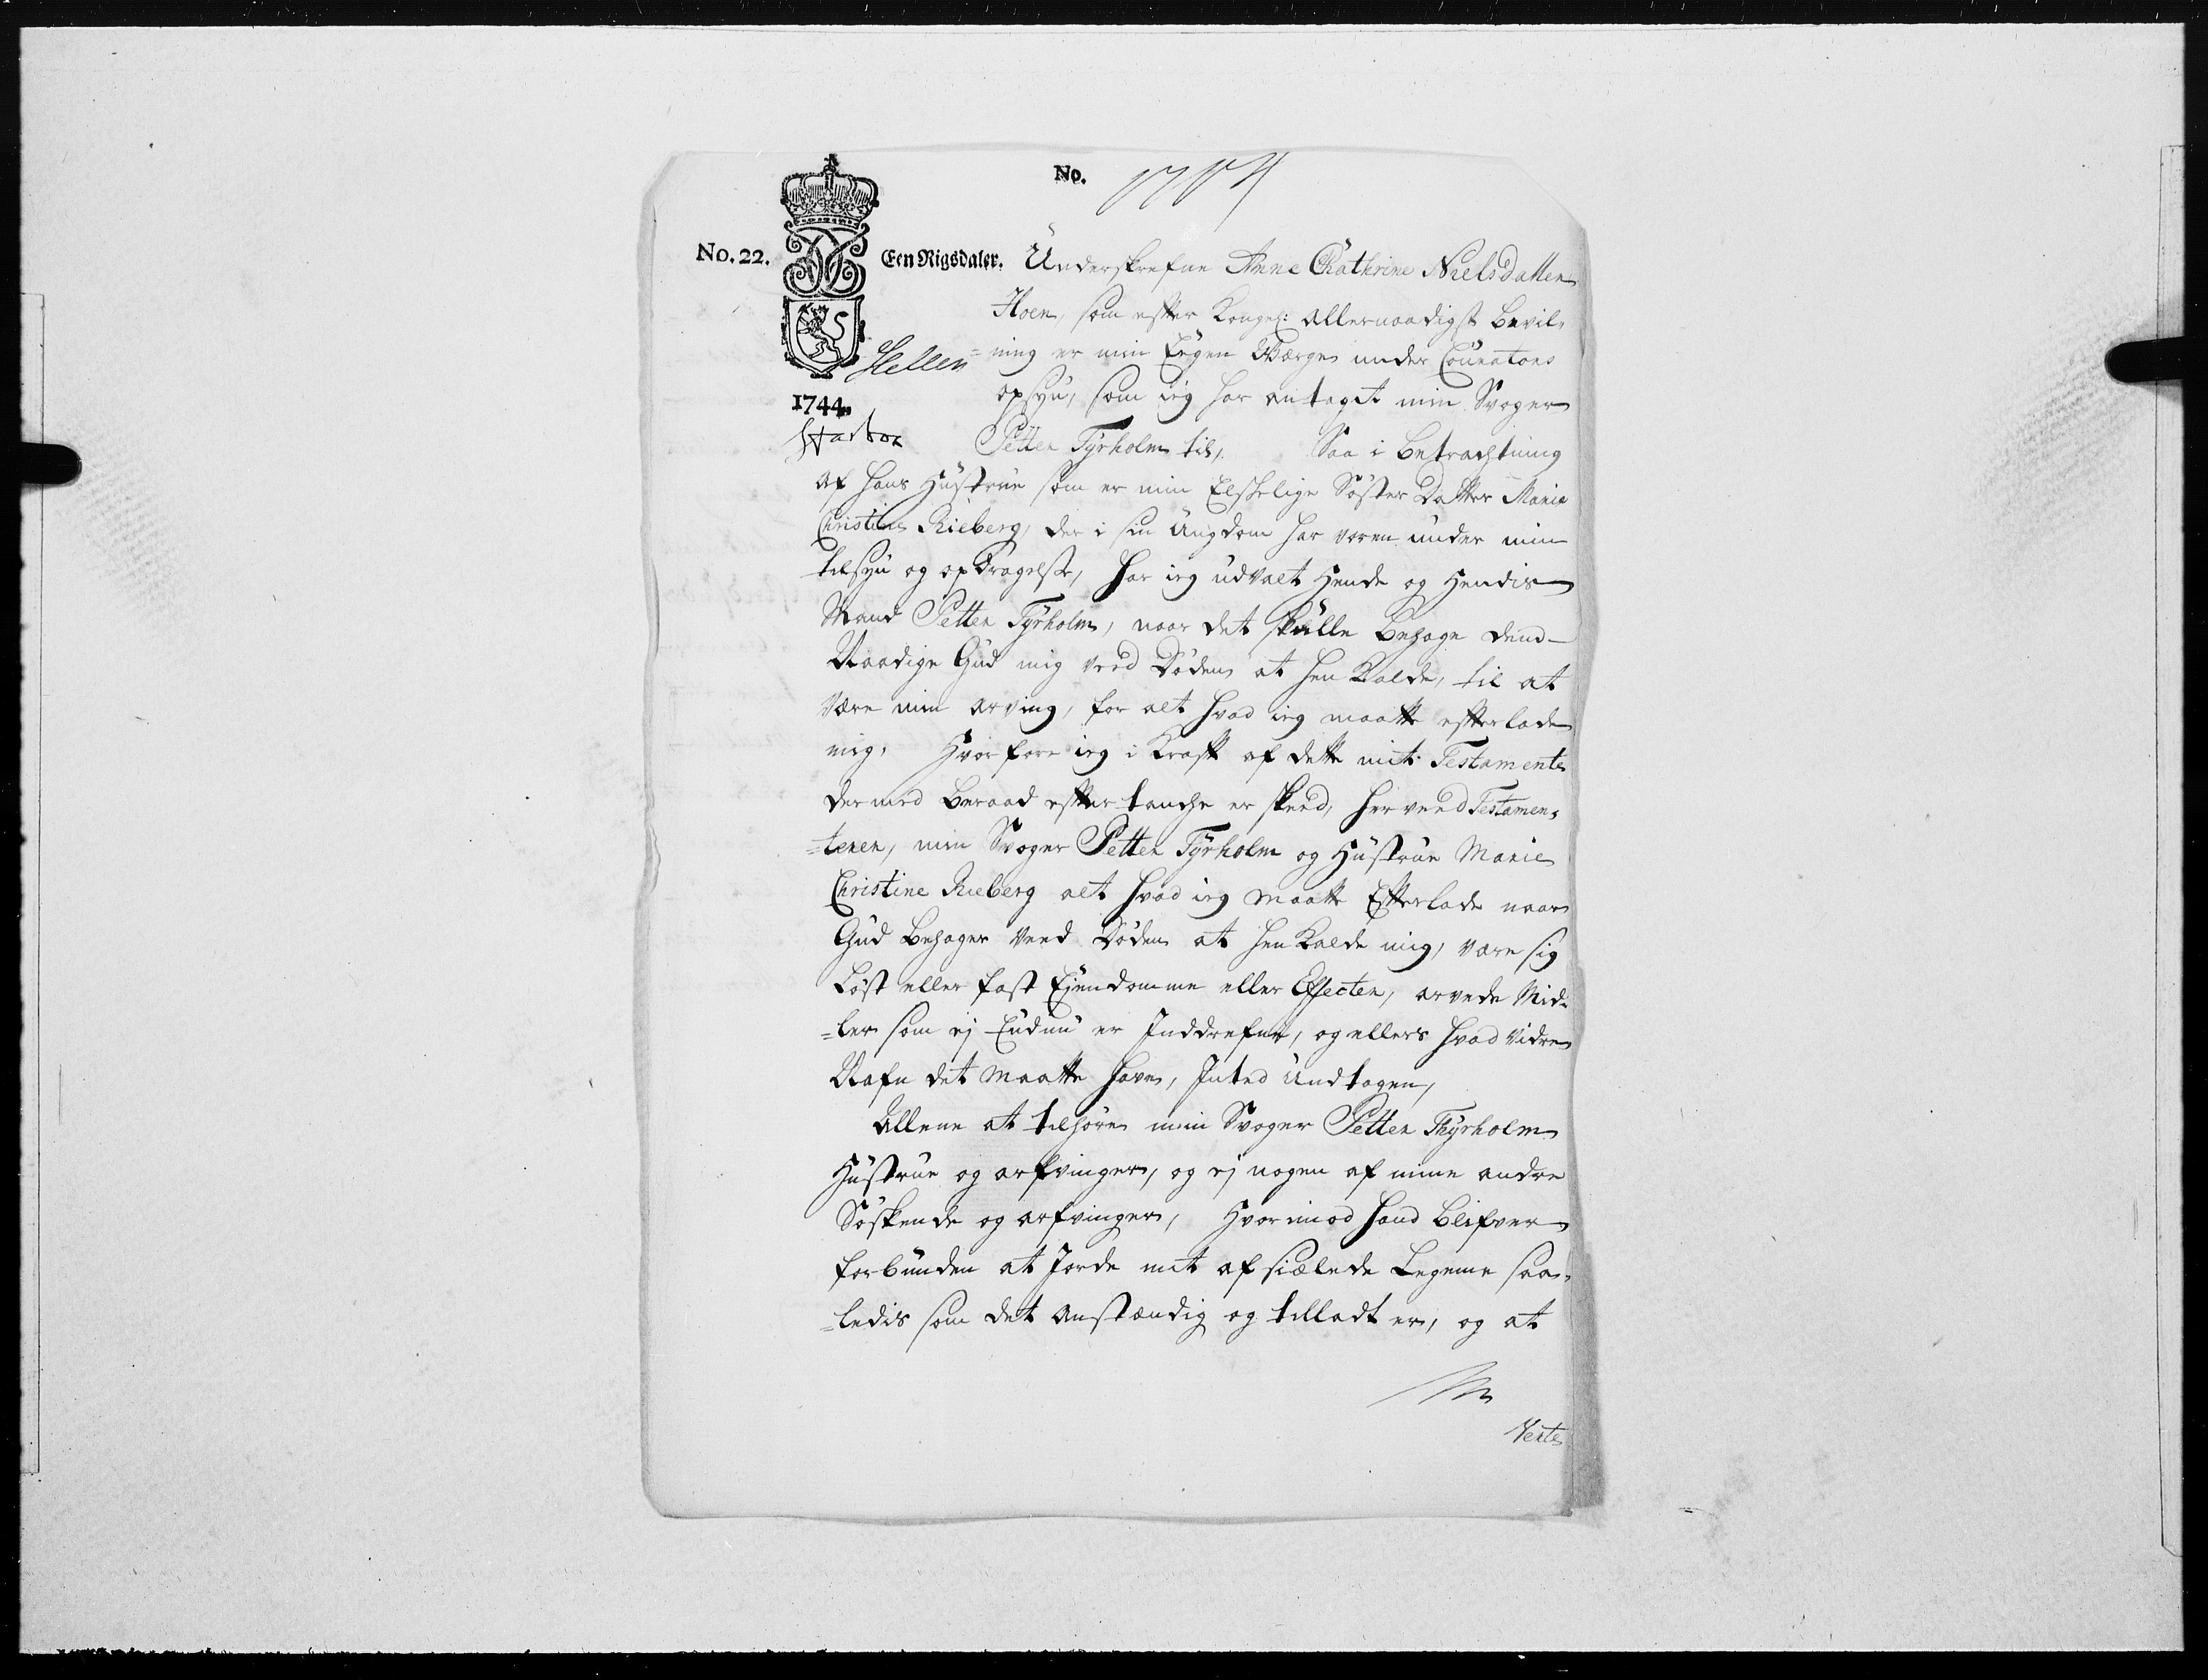 No.
No. 22.
Een Rigsdaler. Underskrefne Anne Chathrine Nielsdatter
Hoen, som efter Kongel: Allernaadigst Bevil-
=ning er min Eegen Værge under Courators
opsyn, som ieg har antaget min Svoger
1744.
Petter Tyrholm til, Saa i Betragtning
af hans Hustrue som er min Elskelige Søster Datter Marie
Christine Rieberg, der i sin Ungdom har voren under min
tilsyn og opdragelse, har ieg udvalt Hende og Hendis
Mand Petter Tyrholm, naar det skulle Behage dend
Naadige Gud mig veed Døden at hen Kalde, til at
være min arving, for alt hvad ieg maatte efterlade
mig, Hvorfore ieg i Kraft af dette mit Testamente
der med Beraad eftertanche er skeed, herveed Testamen-
=terer, min Svoger Petter Tyrholm og Hustrue Marie
Christine Rieberg alt hvad ieg maatte Efterlade naar
Gud Behager veed Døden at hen Kalde mig, være sig
Løst eller fast Ejendomme eller Effecter, arvede Mid-
=ler som ej Endnu er Inddrefne, og ellers hvad vidre
Nafn det maatte have, Inted Undtagen,
Allene at tilhøre min Svoger Petter Thyrholm
Hustrue og arfvinger, og ej nogen af mine andre
Søskende og arfvinger, Hvorimod hand Blifver
forbunden at Jorde mit afsiælede Legeme saa-
=ledis som det anstændig og tilladt er, og at
Verte